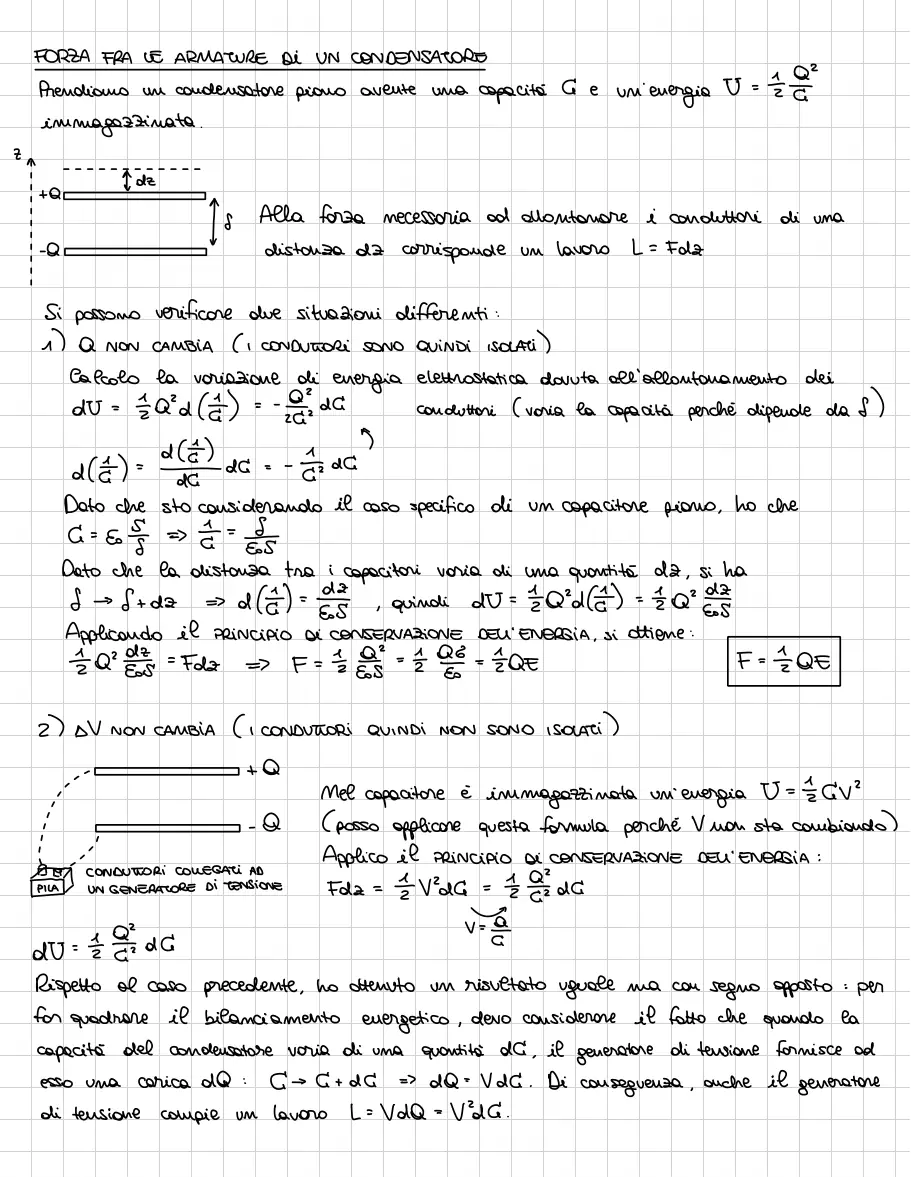 FORZA FRA LE ARMATURE DI UN CONDENSATORE
Prendiamo un condensatore piano avente una capacità C e un'energia U = 1/2 Q²/C
immagazzinata.
z
dz
+Q
δ
-Q
Alla forza necessaria ad allontanare i conduttori di una
distanza dz corrisponde un lavoro L = Fdz
Si possono verificare due situazioni differenti:
1) Q NON CAMBIA (I CONDUTTORI SONO QUINDI ISOLATI)
Calcolo la variazione di energia elettrostatica dovuta all'allontanamento dei
dU = 1/2 Q² d(1/C) = - Q²/2C² dC conduttori (varia la capacità perché dipende da δ)
d(1/C) = d(1/C)/dC dC = - 1/C² dC
Dato che sto considerando il caso specifico di un capacitore piano, ho che
C = ε₀ S/δ => 1/C = δ/ε₀S
Dato che la distanza tra i capacitori varia di una quantità dz, si ha
δ → δ + dz => d(1/C) = dz/ε₀S , quindi dU = 1/2 Q² d(1/C) = 1/2 Q² dz/ε₀S
Applicando il PRINCIPIO DI CONSERVAZIONE DELL'ENERGIA, si ottiene:
1/2 Q² dz/ε₀S = Fdz => F = 1/2 Q²/ε₀S = 1/2 Qσ/ε₀ = 1/2 QE
F = 1/2 QE
2) ΔV NON CAMBIA (I CONDUTTORI QUINDI NON SONO ISOLATI)
+ Q
- Q
PILA
CONDUTTORI COLLEGATI AD
UN GENERATORE DI TENSIONE
Nel capacitore è immagazzinata un'energia U = 1/2 CV²
(posso applicare questa formula perché V non sta cambiando)
Applico il PRINCIPIO DI CONSERVAZIONE DELL'ENERGIA:
Fdz = 1/2 V²dC = 1/2 Q²/C² dC
V = Q/C
dU = 1/2 Q²/C² dC
Rispetto al caso precedente, ho ottenuto un risultato uguale ma con segno opposto: per
far quadrare il bilanciamento energetico, devo considerare il fatto che quando la
capacità del condensatore varia di una quantità dC, il generatore di tensione fornisce ad
esso una carica dQ: C → C + dC => dQ = VdC. Di conseguenza, anche il generatore
di tensione compie un lavoro L = VdQ = V²dC.